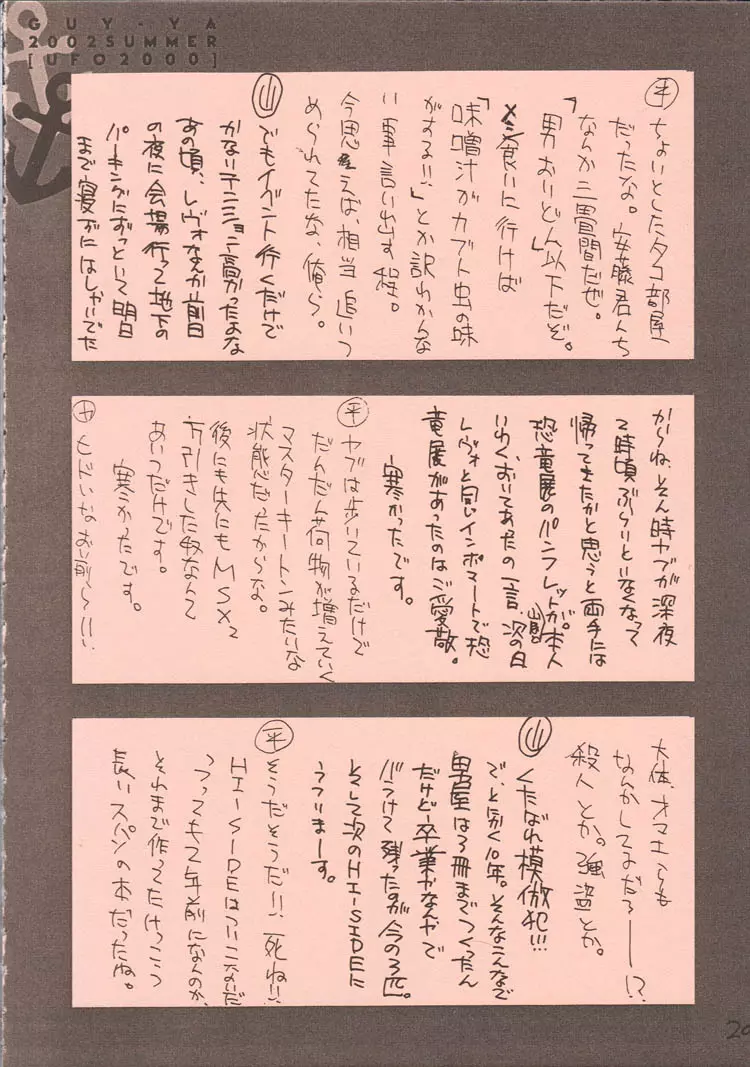 GUY-YA
2002SUMMER
[UFO2000]
㊥ ちょいとしたタコ部屋
だったな。安藤君んち
なんか三畳間だぜ。
「男おいどん以下だぞ。」
メシ食いに行けば
「味噌汁がカブト虫の味
がする!!」とか訳わかんな
い事言い出す程。
今思えば、相当追いつ
められてたな、俺ら。
㊤ でもイベント行くだけで
かなりテンション高かったよな
あの頃、レヴォなんか前日
の夜に会場行って地下の
パーキングにずっといて明日
まで寝ずにはしゃいでた
からね、そん時ヤブが深夜
2時頃ぶらりといなくなって
帰ってきたかと思うと両手には
恐竜展のパンフレットが。本人
いわく、おいてあたの一言、次の日
レヴォと同じインポマートで恐
竜展があったのはご愛敬。
寒かったです。
平 ヤブは歩いているだけで
だんだん荷物が増えていく
マスターキートンみたいな
状態だったからな。
後にも先にもMSX2
万引きした奴なんて
あいつだけです。
寒かったです。
ヤ ヒドいなお前ら!!!
大体、オマエらも
なんかしてるだろー!?
殺人とか。強盗とか。
山 くたばれ模倣犯!!!
で、と別く10年。そんなこんなで
男屋は3冊までつくったん
だけど卒業やなんやで
バラけて残ったのが今の3匹。
そして次のHI-SIDEに
うつりまーす。
平 そうだそうだ!!死ね!!
HI-SIDEはついこないだ
つってもう2年前になんのか、
それまで作ってたけっこう
長いスパンの本だったね。